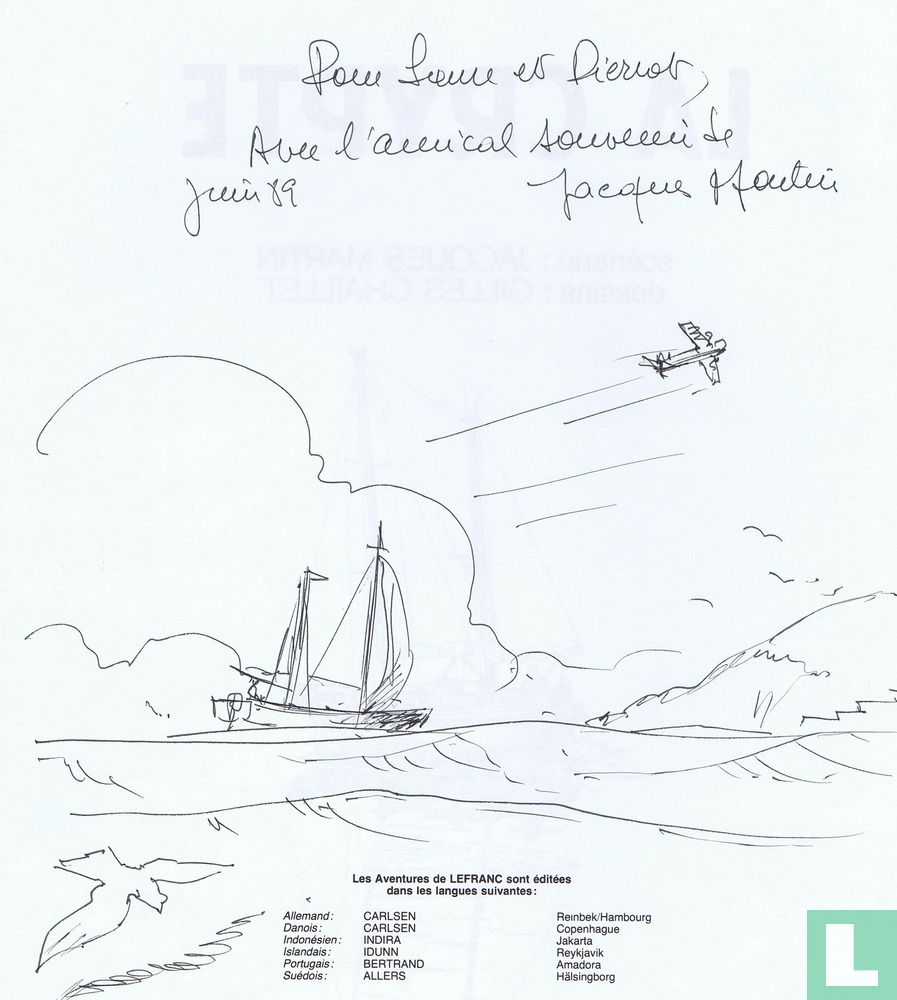 Pour Laure et Pierrot,
Avec l'amical souvenir de
Juin 89 Jacques Martin
LA CRYPTE
scénario : JACQUES MARTIN
dessins : GILLES CHAILLET
Les Aventures de LEFRANC sont éditées
dans les langues suivantes :
Allemand : CARLSEN Reinbek/Hambourg
Danois : CARLSEN Copenhague
Indonésien : INDIRA Jakarta
Islandais : IDUNN Reykjavik
Portugais : BERTRAND Amadora
Suédois : ALLERS Hälsingborg
L